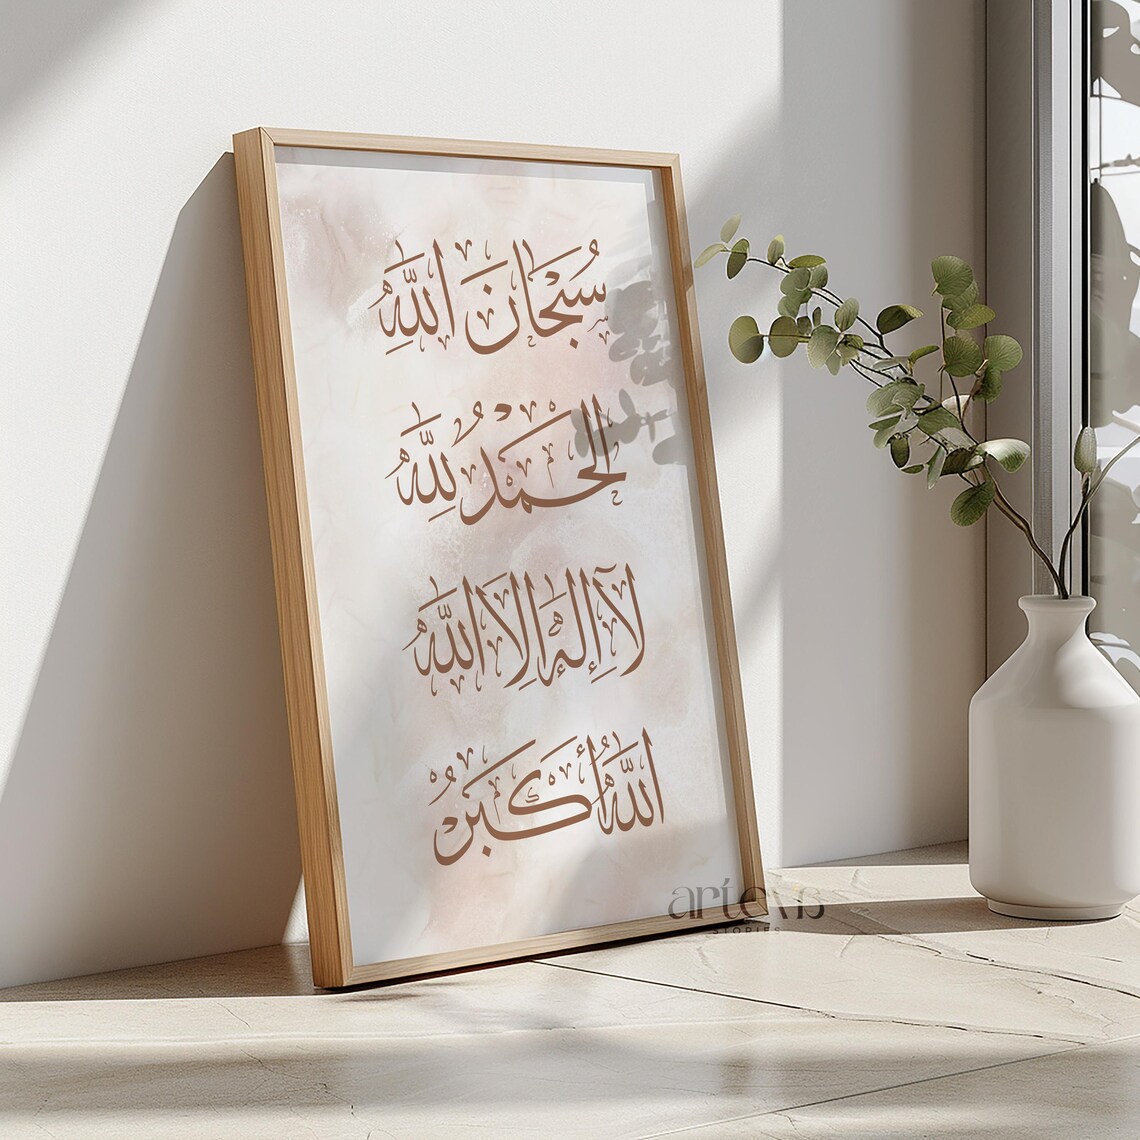 سُبْحَانَ اللَّهِ
الْحَمْدُ لِلَّهِ
لَآ إِلٰهَ إِلَّا اللَّهُ
اللَّهُ أَكْبَرُ
artevia
STORIES